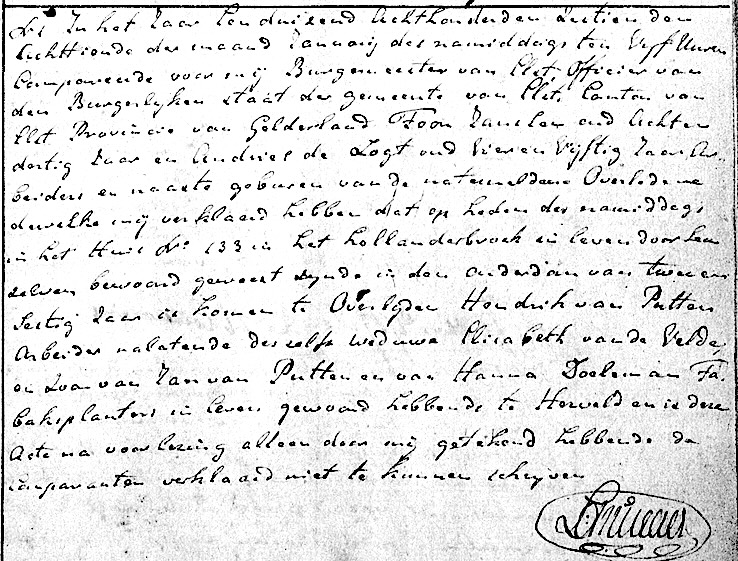 In het Jaar Eenduizend Achthonderden Zestien den
Achttiende der maand Januarij des namiddags ten Vyf Uuren
Compareerde voor mij Burgemeester van Elst, Officier van
den Burgerlyken staat der gemeente van Elst, Canton van
Elst Provincie van Gelderland Toon Janssen oud Achten
dertig Jaar en Andries de Logt oud Vier en Vyftig Jaar Ar-
beiders en naaste geburen van de natemeldene Overledene
dewelke mij verklaard hebben dat op heden des namiddags
in het Huis No. 133 in het hollanderbroek in leven door hem
zelven bewoond geweest zynde in den ouderdom van twee en
Sestig Jaar is komen te Overlyden Hendrik van Putten
Arbeider nalatende deszelfs weduwe Elisabeth van de Velde,
en Zoon van Jan van Putten en van Hanna Doeleman Ta-
baksplanters in leven gewoond hebbende te Herveld en is deze
Acte na voorlezing alleen door mij getekend hebbende de
Comparanten verklaard niet te kunnen schryven